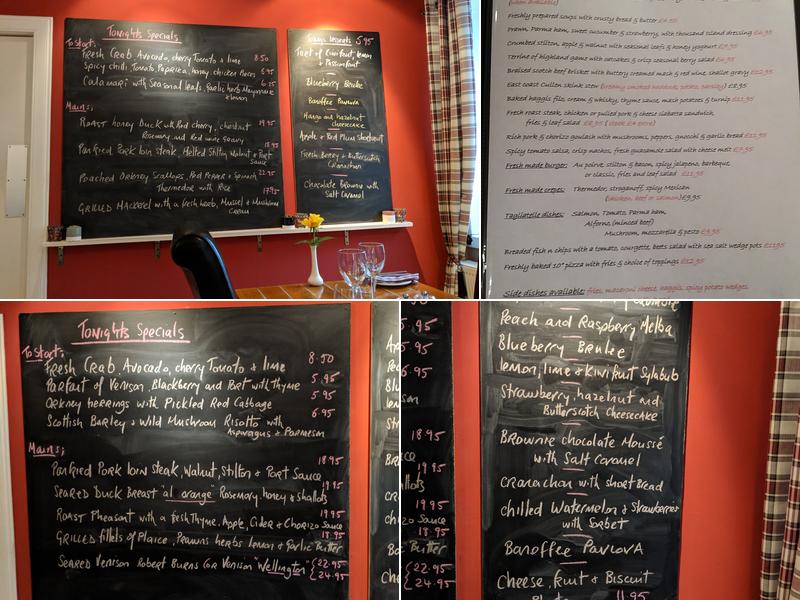 Tonights Specials
To Start:
Fresh Crab, Avocado, cherry Tomato + lime 8.50
Spicy chilli, Tomato, Paprika, honey chicken 6.95
Calamari with Seasonal leafs, Garlic herb Mayonnaise + lemon
Mains:
ROAST honey Duck with Red cherry, chestnut 19.95
Rosemary and Red wine
Panfried Pork loin steak, Melted Stilton Walnut + Port Sauce 18.95
Poached Orkney Scallops, Red Pepper + Spinach 22.95
Thermedor with Rice
GRILLED MACKEREL with a fresh herb, Mussel + Mushroom Cream 17.95
Desserts 5.95
Tart of Kiwifruit, lemon + Passionfruit
Blueberry Brulee
Banoffee Pavlova
Mango and hazelnut cheesecake
Apple + Red Plum Shortcrust
Fresh Berry + Butterscotch Cranachan
Chocolate Brownie with Salt Caramel
(when available)
Freshly prepared soups with crusty bread & butter £4.50
Prawn, Parma ham, sweet cucumber & strawberry, with thousand island dressing
Crumbed stilton, apple & walnut with seasonal leafs & honey yoghurt
Terrine of highland game with oatcakes & crisp seasonal berry salad
Braised scotch beef brisket with buttery creamed mash & red wine, shallot gravy £12.95
East coast Cullen skink stew (creamy smoked haddock, potato, parsley) £8.95
Baked haggis filo, cream & whisky, thyme sauce, mash potatoes & turnip £11.95
Fresh roast steak, chicken or pulled pork & cheese ciabatta sandwich,
fries & leaf salad £8.95 (steak £4 extra)
Rich pork & chorizo goulash with mushrooms, peppers, gnocchi & garlic bread £11.95
Spicy tomato salsa, crisp nachos, fresh guacamole salad with cheese melt £7.95
Fresh made burger: Au poivre, stilton & bacon, spicy jalapeno, barbeque,
or classic, fries and leaf salad £11.95
Fresh made crepes: Thermedor, stroganoff, spicy Mexican
(chicken, beef or salmon) £9.95
Tagliatelle dishes: Salmon, Tomato, Parma ham,
Alforno, (minced beef)
Mushroom, mozzarella & pesto £9.95
Breaded fish n chips with a tomato, courgette, beets salad with sea salt wedge pots £11.95
Freshly baked 10" pizza with fries & choice of toppings £12.95
Side dishes available: fries, macaroni cheese, haggis, spicy potato wedges,
Tonights Specials
To Start:
Fresh Crab, Avocado, cherry Tomato + lime 8.50
Parfait of Venison, Blackberry and Beet with Thyme 5.95
Orkney herrings with Pickled Red Cabbage 5.95
Scottish Barley + Wild Mushroom Risotto with 6.95
Asparagus + Parmesan
Mains;
Panfried Pork loin steak, Walnut, Stilton + Port Sauce 18.95
Seared Duck Breast "al orange" Rosemary, honey + shallots 19.95
Roast Pheasant with a fresh Thyme, Apple, Cider + Chorizo Sauce 19.95
GRILLED fillets of Plaice, Prawns herbs Lemon + Garlic Butter 18.95
Seared Venison Robert Burns (or Venison "Wellington" {22.95
24.95
5.95
5.95
6.95
18.95
19.95
19.95
zo Sauce
18.95
Butter
{22.95
24.95
Peach and Raspberry Melba
Blueberry Brulee
lemon, lime + Kiwifruit Sylabub
Strawberry, hazelnut and
Butterscotch Cheesecake
Brownie chocolate Moussé
with Salt Caramel
CRanachan with short Bread
chilled Watermelon + Strawberries
with Sorbet
Banoffee PavlovA
Cheese, fruit + Biscuit
11.95